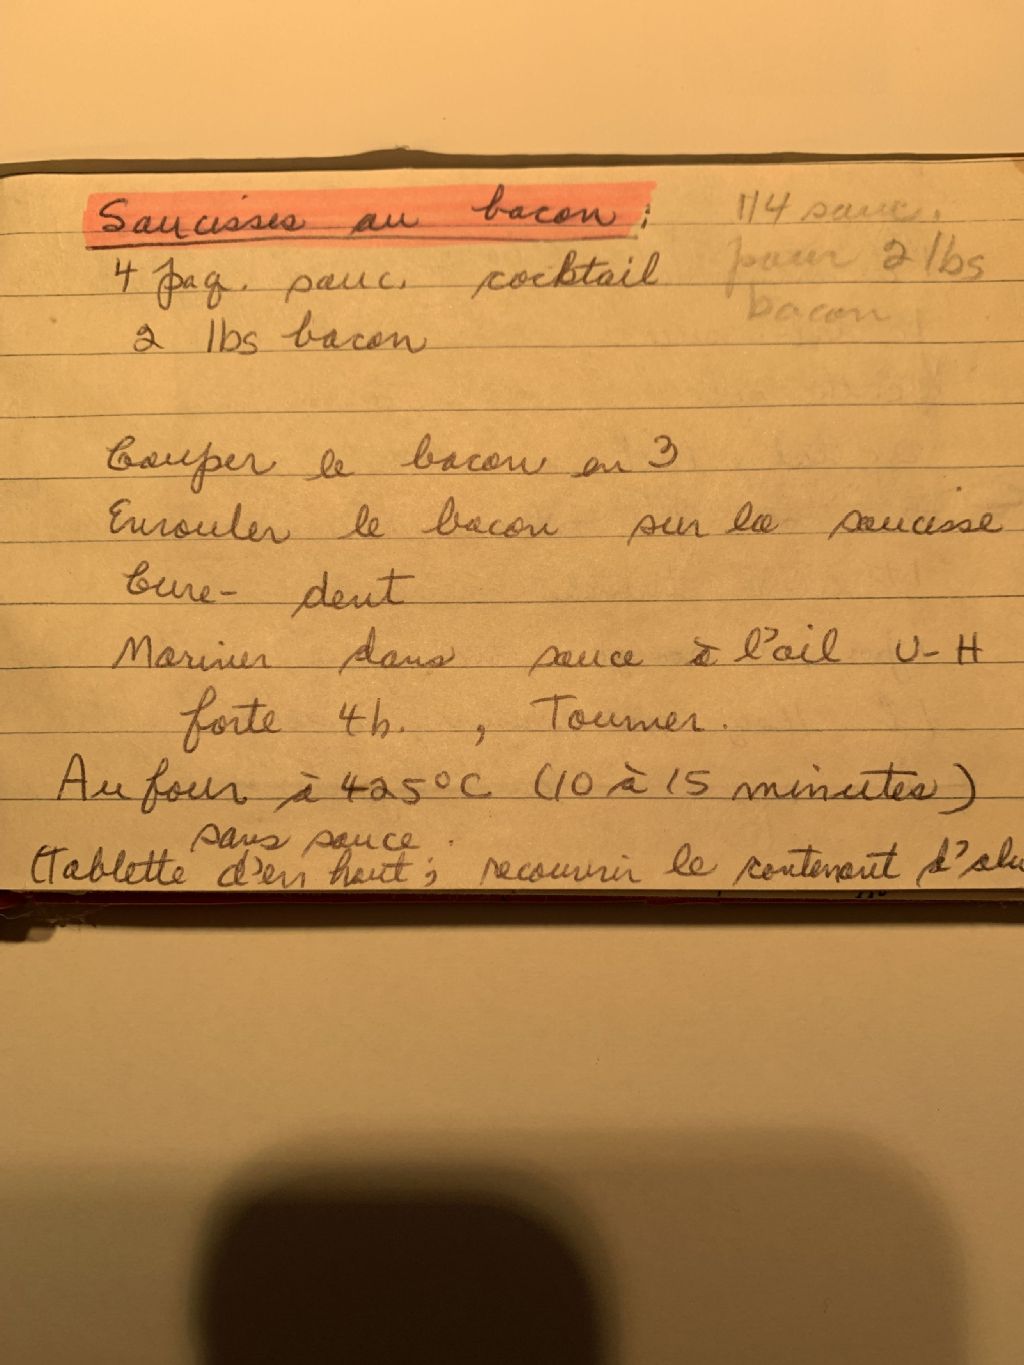 Saucisses au bacon :
114 sauc.
pour 2 lbs
bacon
4 paq. sauc. cocktail
2 lbs bacon
Couper le bacon en 3
Enrouler le bacon sur la saucisse
Cure-dent
Mariner dans sauce à l'ail V-H
forte 4h. , Tourner.
Au four à 425°C (10 à 15 minutes)
sans sauce.
(Tablette d'en haut; recouvrir le contenant d'alu